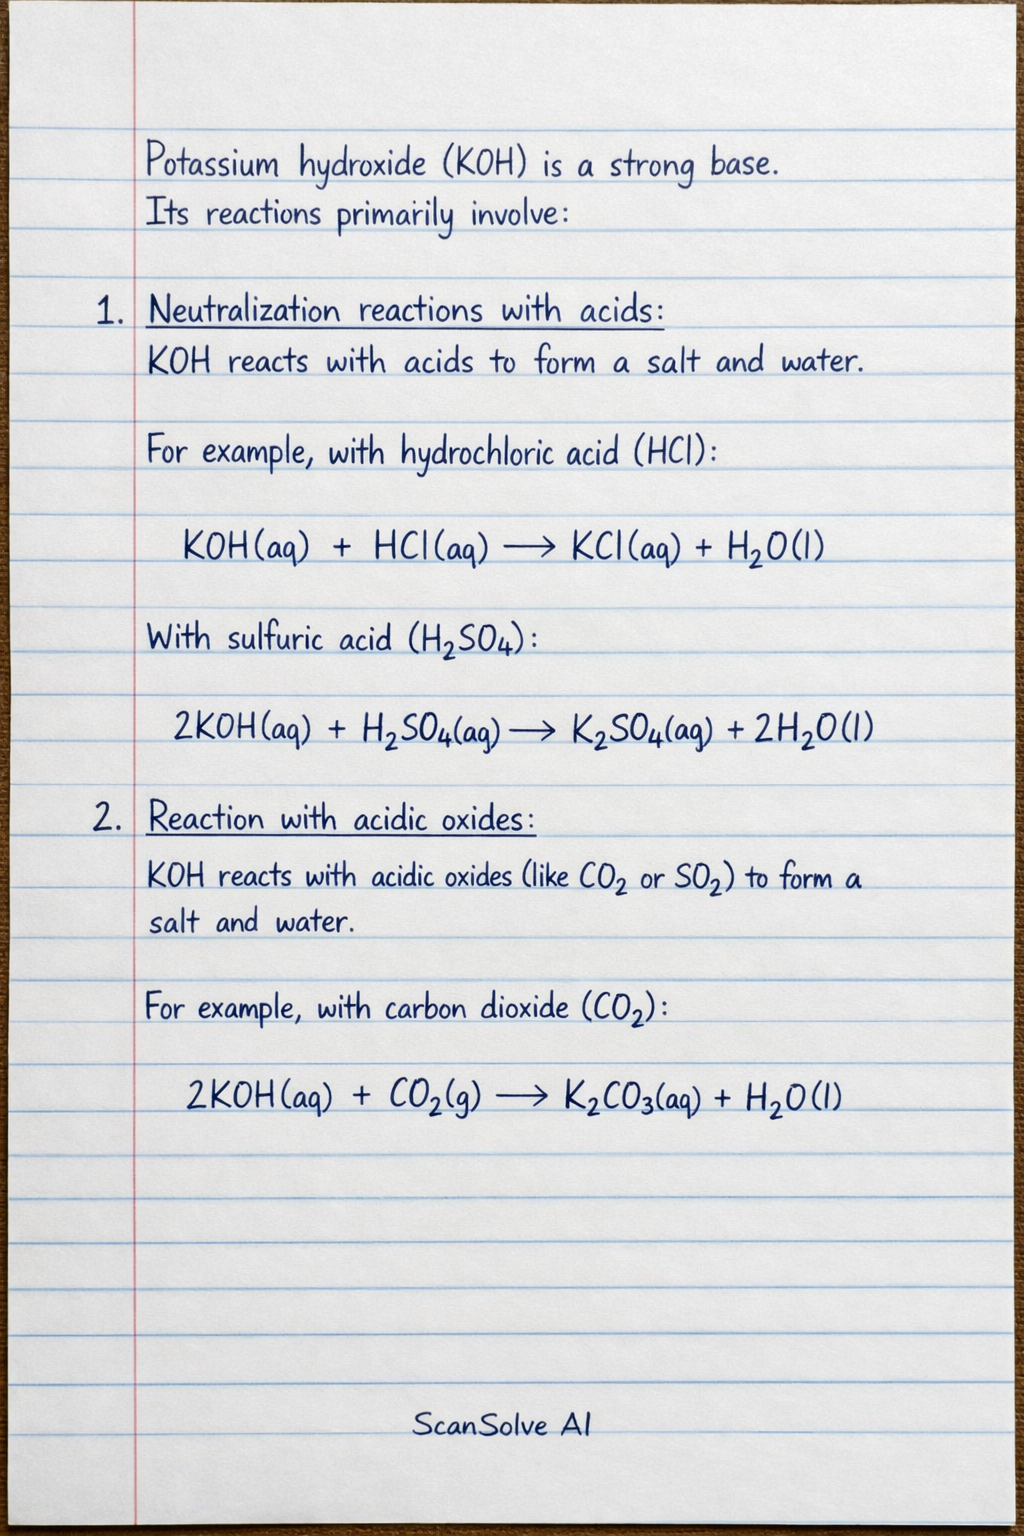 Potassium hydroxide (KOH) is a strong base.
Its reactions primarily involve:
1. Neutralization reactions with acids:
KOH reacts with acids to form a salt and water.
For example, with hydrochloric acid (HCl):
KOH(aq) + HCl(aq) → KCl(aq) + H₂O(l)
With sulfuric acid (H₂SO₄):
2KOH(aq) + H₂SO₄(aq) → K₂SO₄(aq) + 2H₂O(l)
2. Reaction with acidic oxides:
KOH reacts with acidic oxides (like CO₂ or SO₂) to form a
salt and water.
For example, with carbon dioxide (CO₂):
2KOH(aq) + CO₂(g) → K₂CO₃(aq) + H₂O(l)
ScanSolve AI